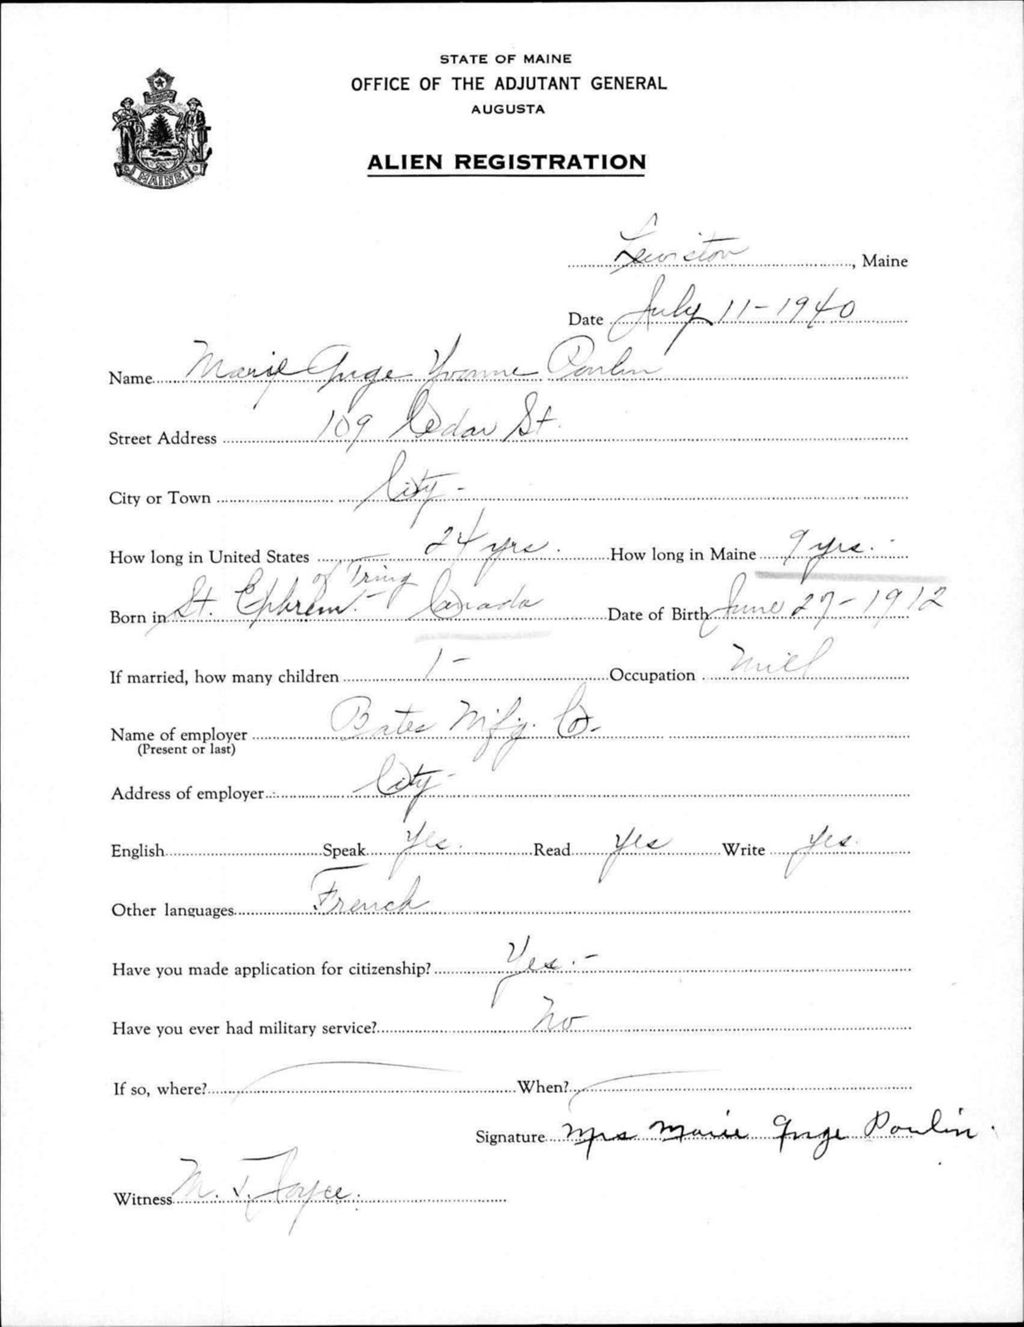 STATE OF MAINE
OFFICE OF THE ADJUTANT GENERAL
AUGUSTA
ALIEN REGISTRATION
MAINE
Lewiston, Maine
Date July 11-1940
Name Marie Ange Yvonne Poulin
Street Address 109 Cedar St.
City or Town City-
How long in United States 24 yrs. How long in Maine 9 yrs.
of Tring
Born in St. Ephrem- Canada Date of Birth June 27-1912
If married, how many children 1- Occupation Mill
Name of employer Bates Mfg. Co-
(Present or last)
Address of employer City-
English Speak Yes. Read Yes Write Yes.
Other languages French
Have you made application for citizenship? Yes.-
Have you ever had military service? No
If so, where? When?
Signature Mrs Marie Ange Poulin.
Witness M. J. Joyce.